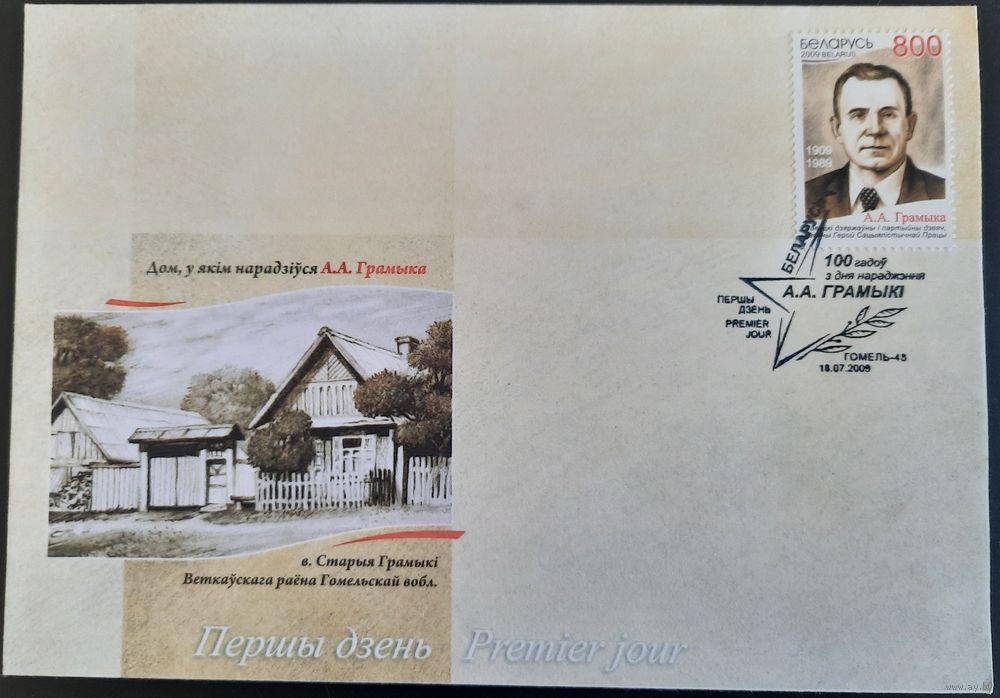 БЕЛАРУСЬ 800
2009 BELARUS
1909
1989
А.А. Грамыка
дзяржаўны і партыйны дзеяч,
Герой Сацыялістычнай Працы
БЕЛАРУСЬ
100 гадоў
з дня нараджэння
А.А. ГРАМЫКІ
ПЕРШЫ
ДЗЕНЬ
PREMIER
JOUR
ГОМЕЛЬ-45
18.07.2009
Дом, у якім нарадзіўся А.А. Грамыка
в. Старыя Грамыкі
Веткаўскага раёна Гомельскай вобл.
Першы дзень Premier jour